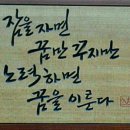 잠을 자면
꿈만 꾸지만
노력하면
꿈을 이룬다